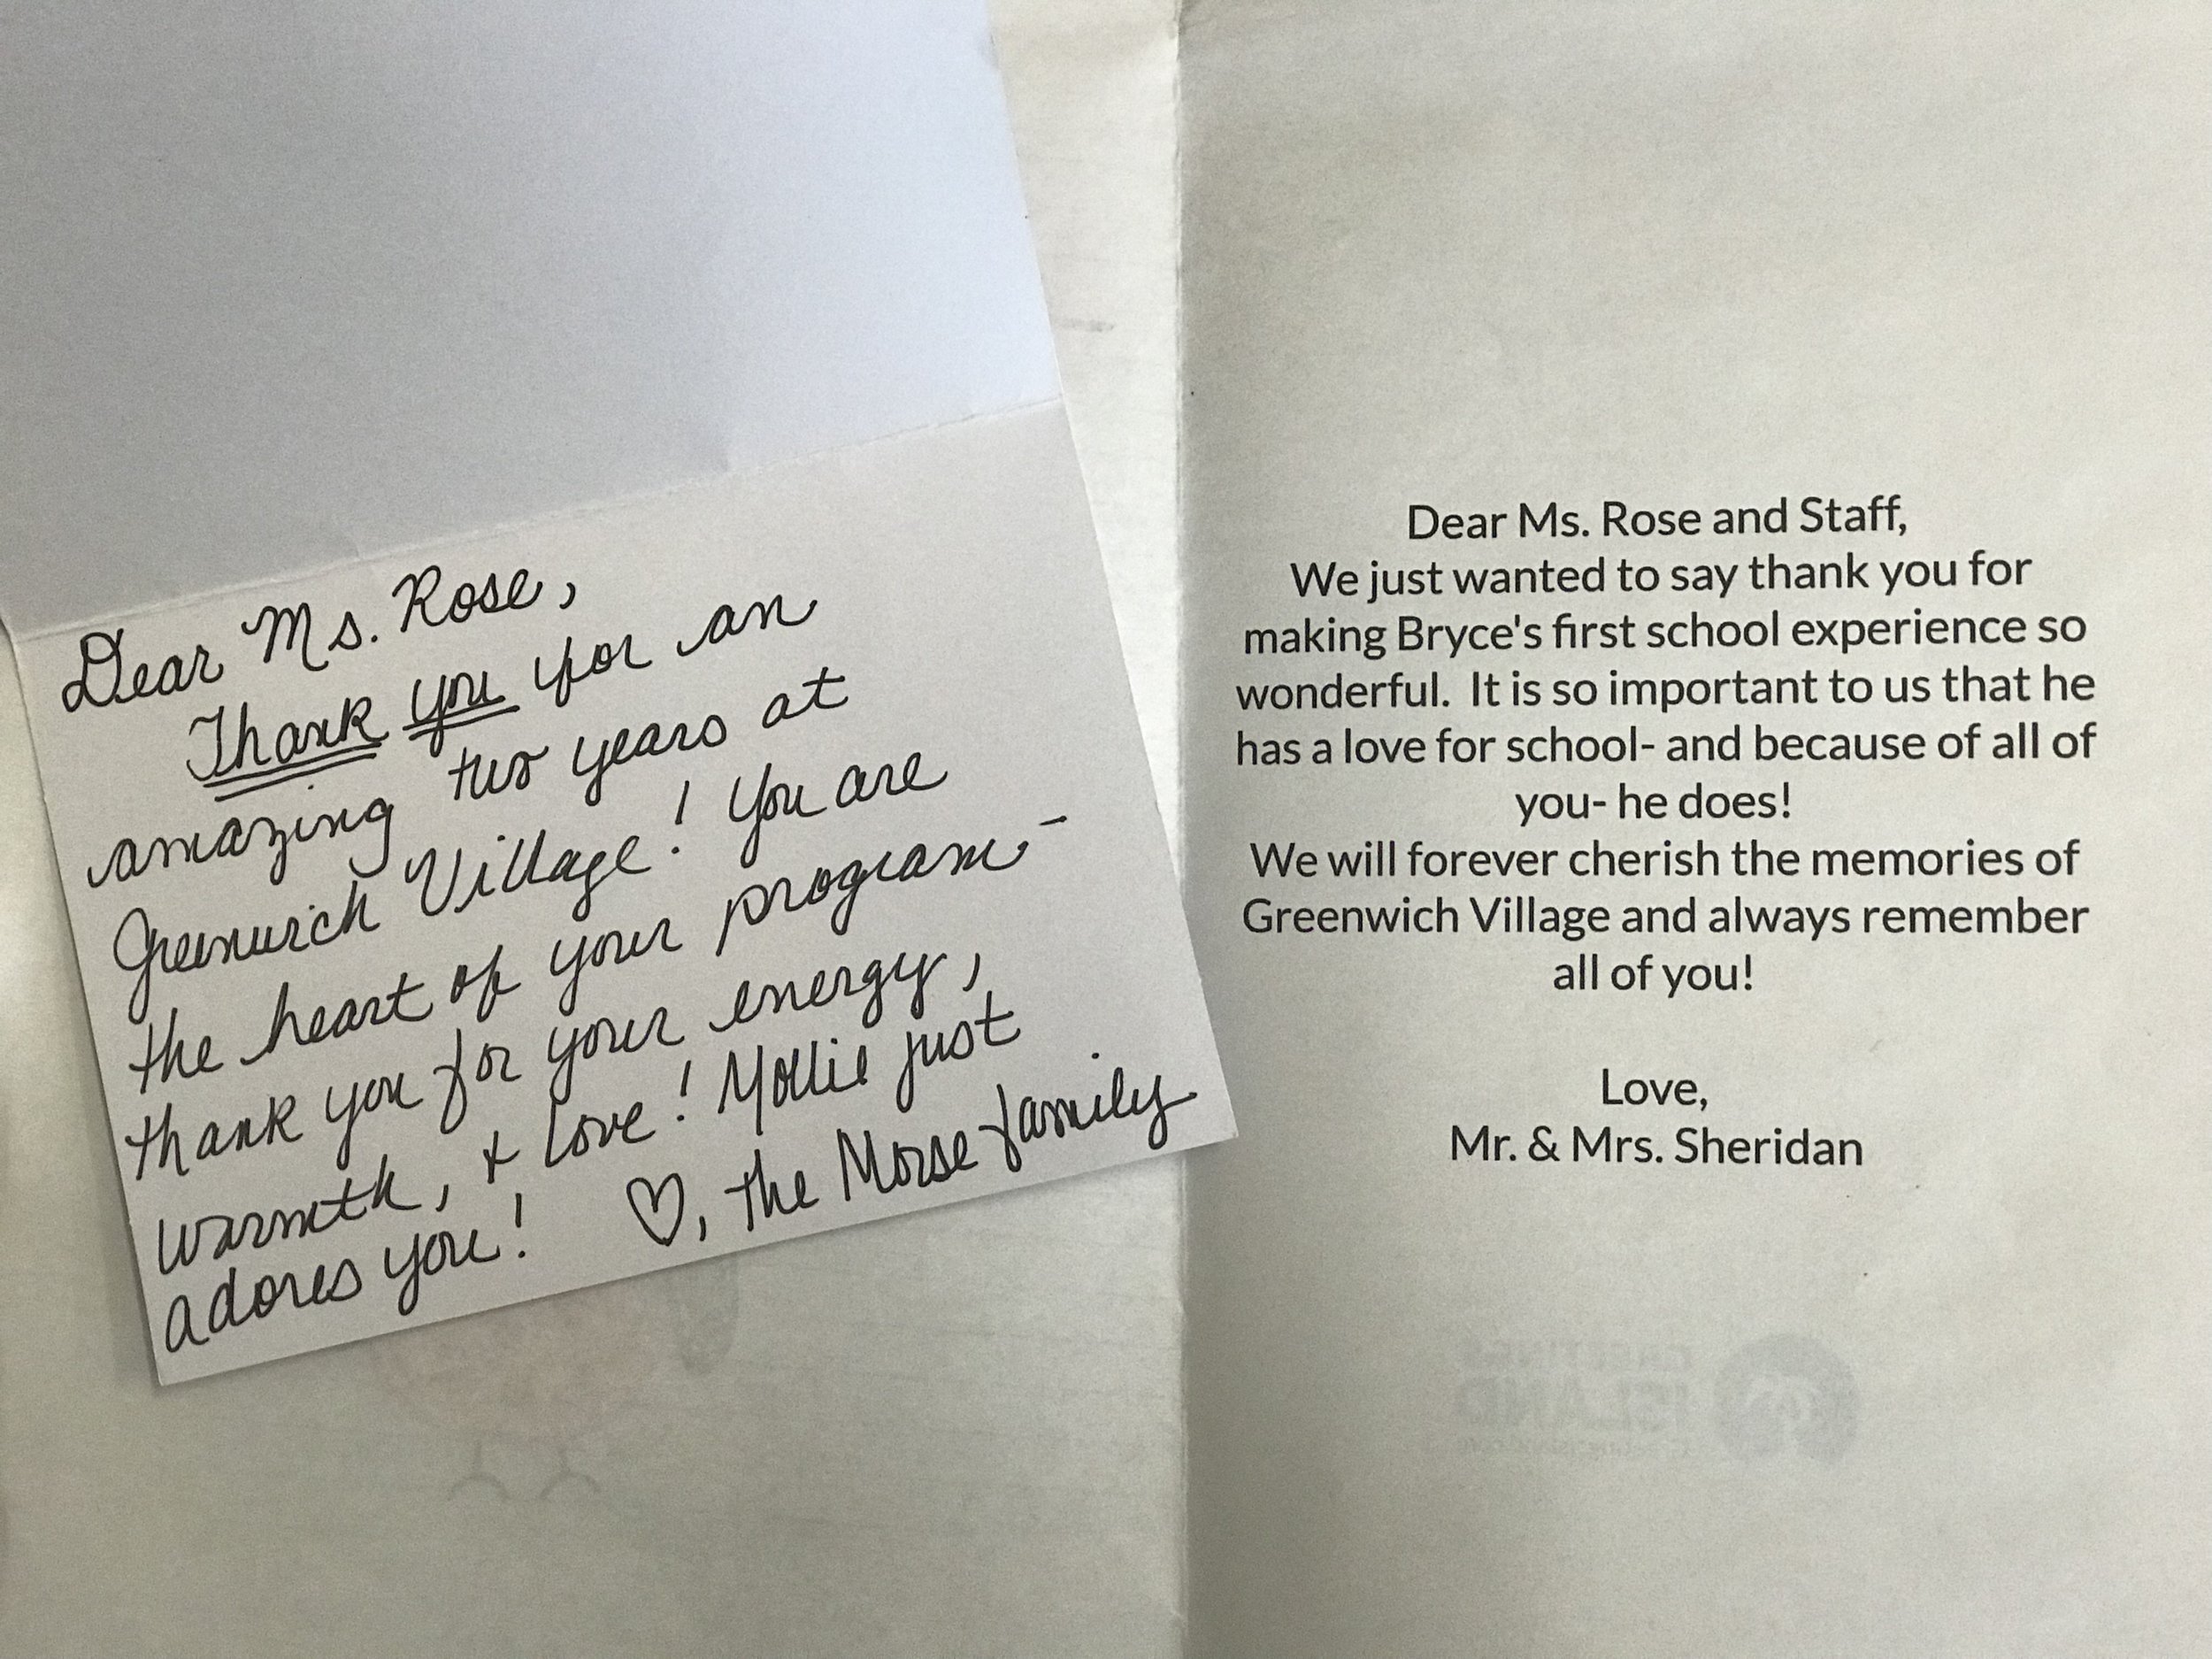 Dear Ms. Rose,
Thank you for an
amazing two years at
Greenwich Village! You are
the heart of your program -
thank you for your energy,
warmth, + love! Mollie just
adores you! ♡, the Morse family
Dear Ms. Rose and Staff,
We just wanted to say thank you for
making Bryce's first school experience so
wonderful. It is so important to us that he
has a love for school- and because of all of
you- he does!
We will forever cherish the memories of
Greenwich Village and always remember
all of you!
Love,
Mr. & Mrs. Sheridan
GREETINGS
ISLAND